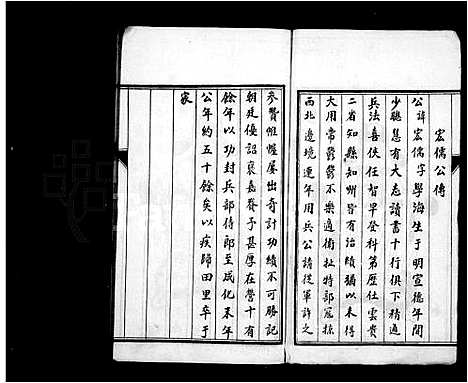 宏儒公傳
公諱宏儒字學海生于明宣德年間
少聰慧有大志讀書十行俱下精通
兵法喜俠任智早登科第歷仕雲貴
二省知縣知州皆有治績猶以未得
大用常鬱鬱不樂適衛拉特部寇掠
西北邊境連年用兵公請從軍許之
參贊帷幄屢出奇計功績不可勝記
朝廷優詔褒嘉眷予甚厚在營十有
餘年以功封兵部侍郎至成化末年
公年約五十餘矣以疾歸田里卒于
家